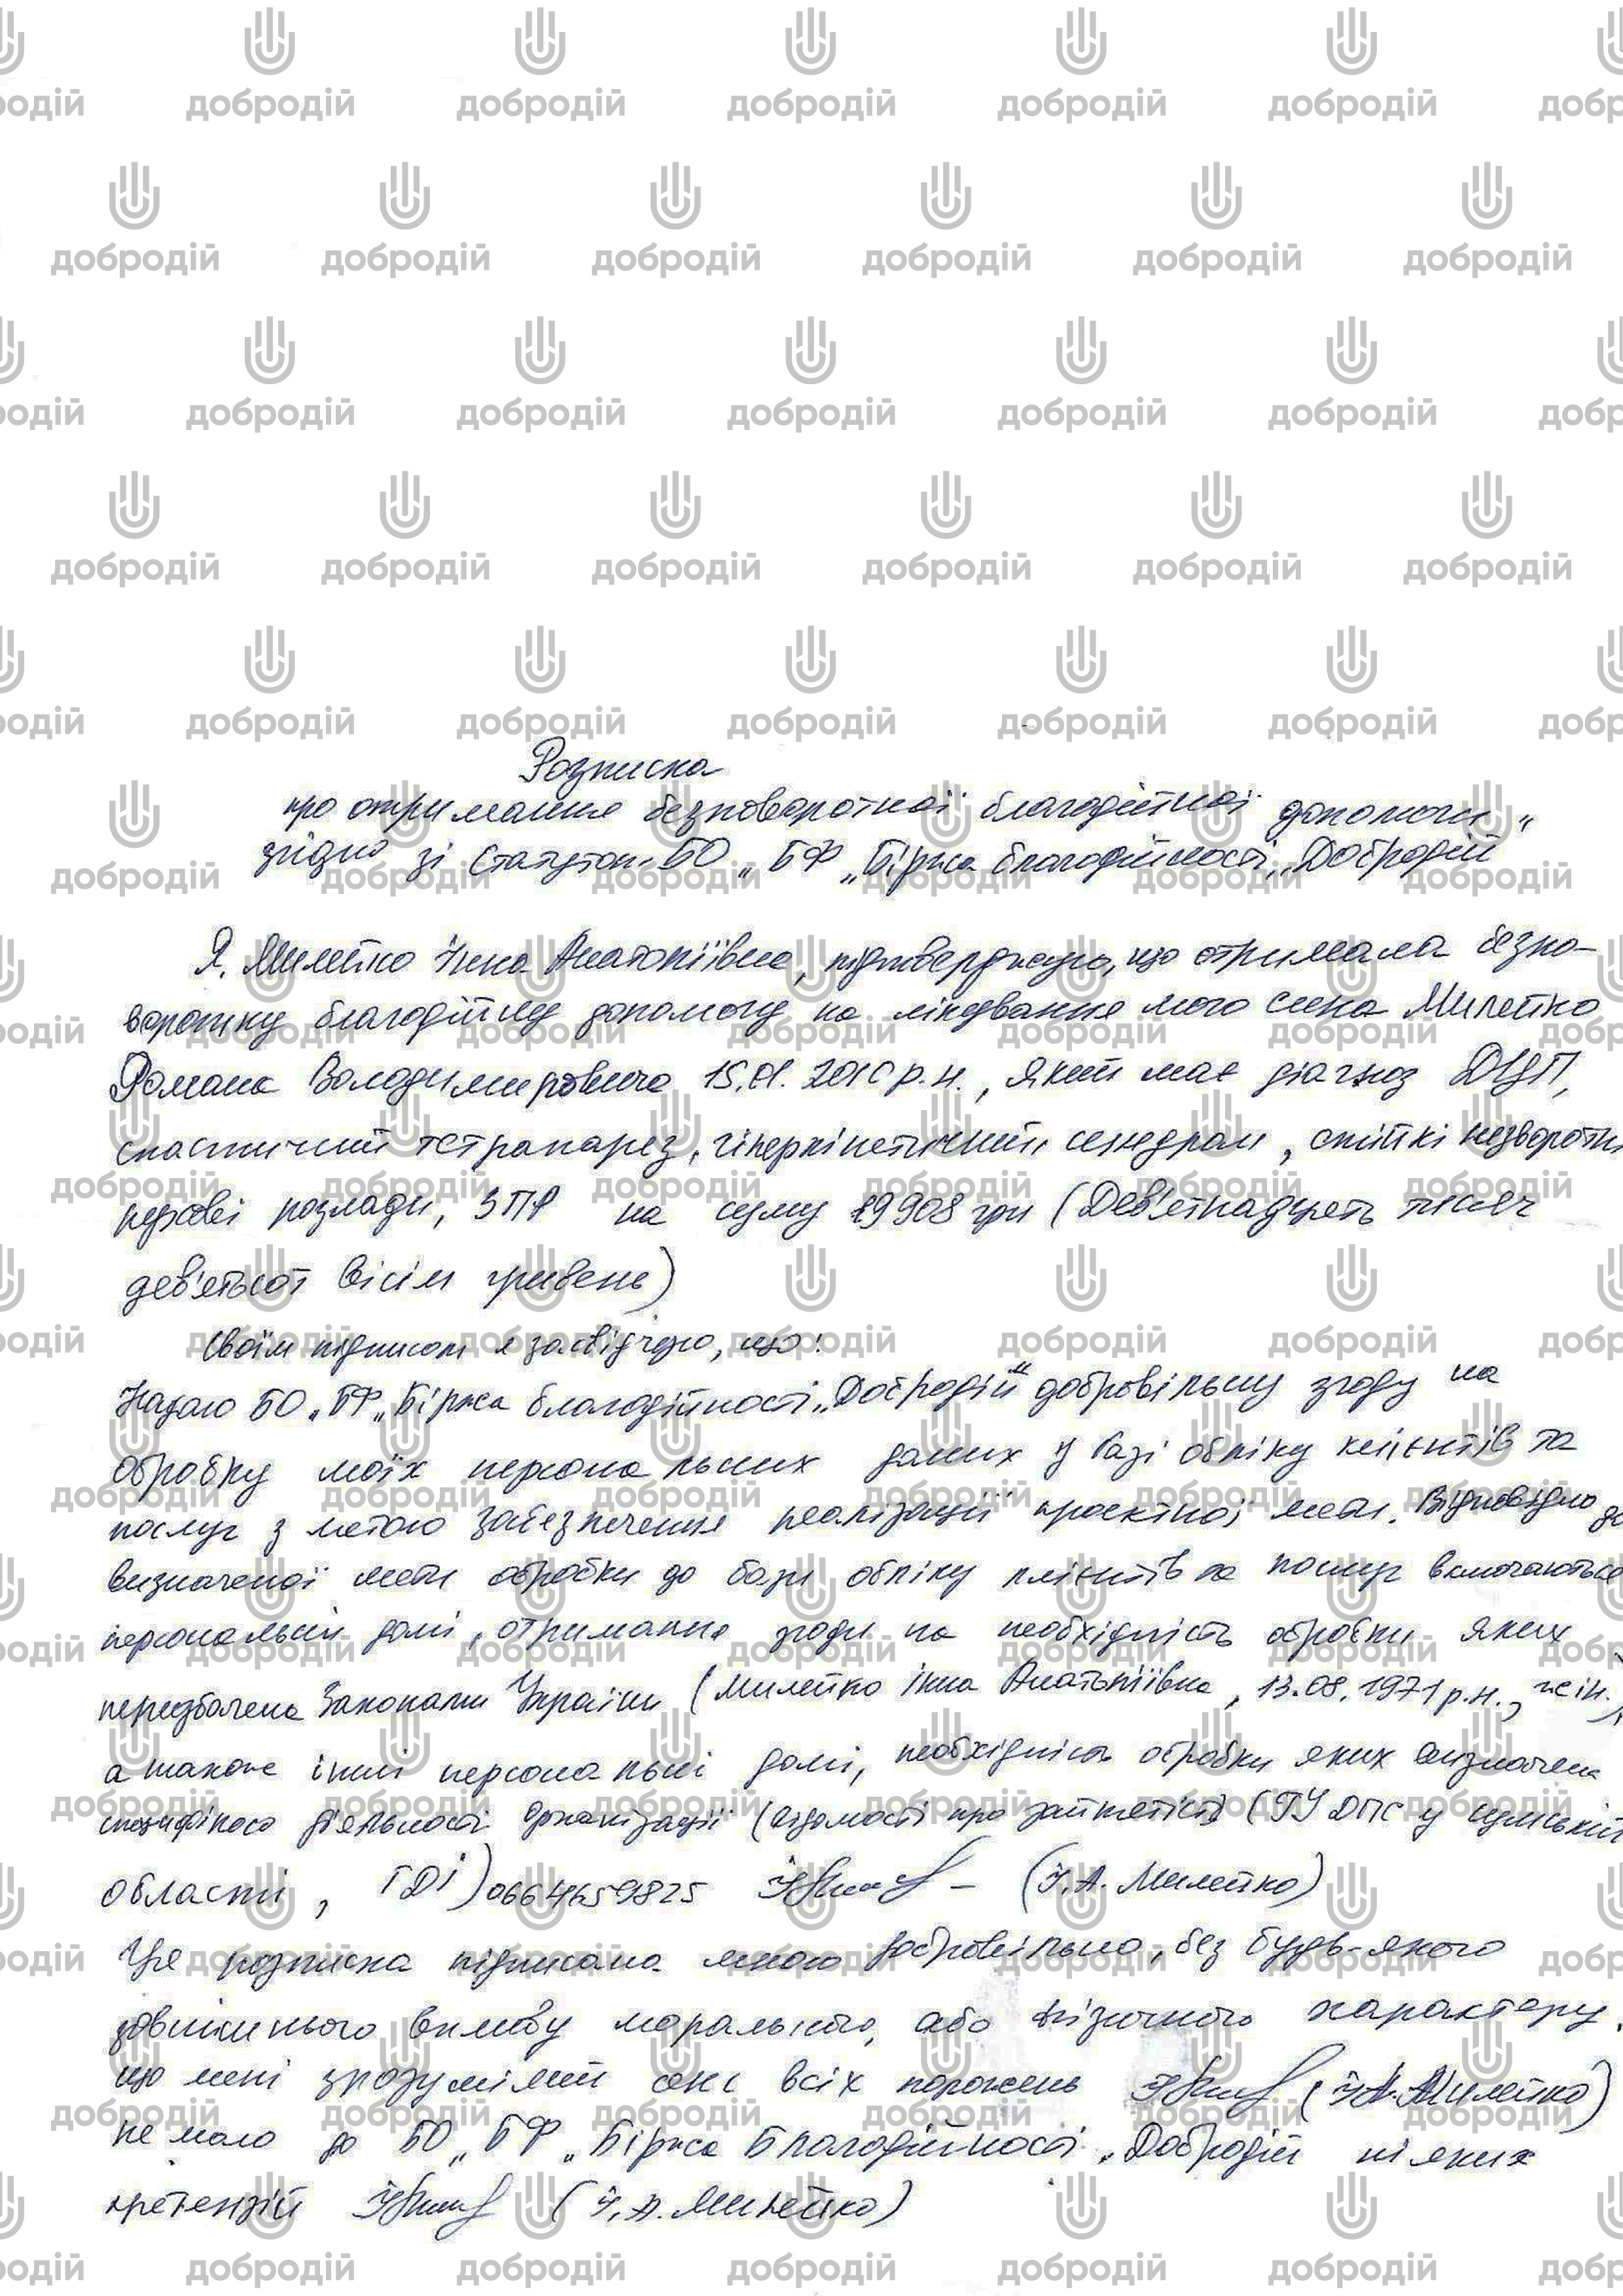 Розписка
про отримання безповоротної благодійної допомоги
згідно зі Статутом БО „БФ „Біржа благодійності „Добродій"
Я, Милейко Інна Анатоліївна, підтверджую, що отримала безпо-
воротну благодійну допомогу на лікування мого сина Милейко
Романа Володимировича 15.01.2010 р.н., який має діагноз ДЦП,
спастичний тетрапарез, гіперкінетичний синдром, стійкі незворотні
розлади, ЗПР на суму 19908 грн (Дев'ятнадцять тисяч
дев'ятсот вісім гривень)
Своїм підписом я засвідчую, що:
Надаю БО „БФ „Біржа благодійності „Добродій" добровільну згоду на
обробку моїх персональних даних у базі обліку клієнтів та
послуг з метою забезпечення реалізації проектної мети. Відповідно до
визначеної мети обробки до бази обліку клієнтів та послуг включаються
персональні дані, отримання згоди на необхідність обробки яких
передбачена Законами України (Милейко Інна Анатоліївна, 13.08.1971 р.н., жін.)
а також інші персональні дані, необхідність обробки яких визначена
специфікою діяльності організації (відомості про зайнятість) (ГУ ДПС у Сумській
області, ГДІ) 0664659825 (І.А. Милейко)
Ця розписка підписана мною добровільно, без будь-якого
зовнішнього впливу морального, або фізичного характеру,
що мені зрозумілий сенс всіх положень (І.А. Милейко)
не маю до БО „БФ „Біржа Благодійності „Добродій ніяких
претензій (І.А. Милейко)
добродій